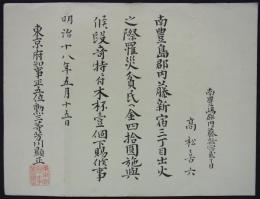 南豊島郡内藤新宿弐丁目
高松喜六
南豊島郡内藤新宿三丁目出火
之際罹災貧民ヘ金四拾圓施與
候段奇特ニ付木杯壹個下賜候事
明治十八年五月十五日
東京府知事正五位勲三等芳川顕正